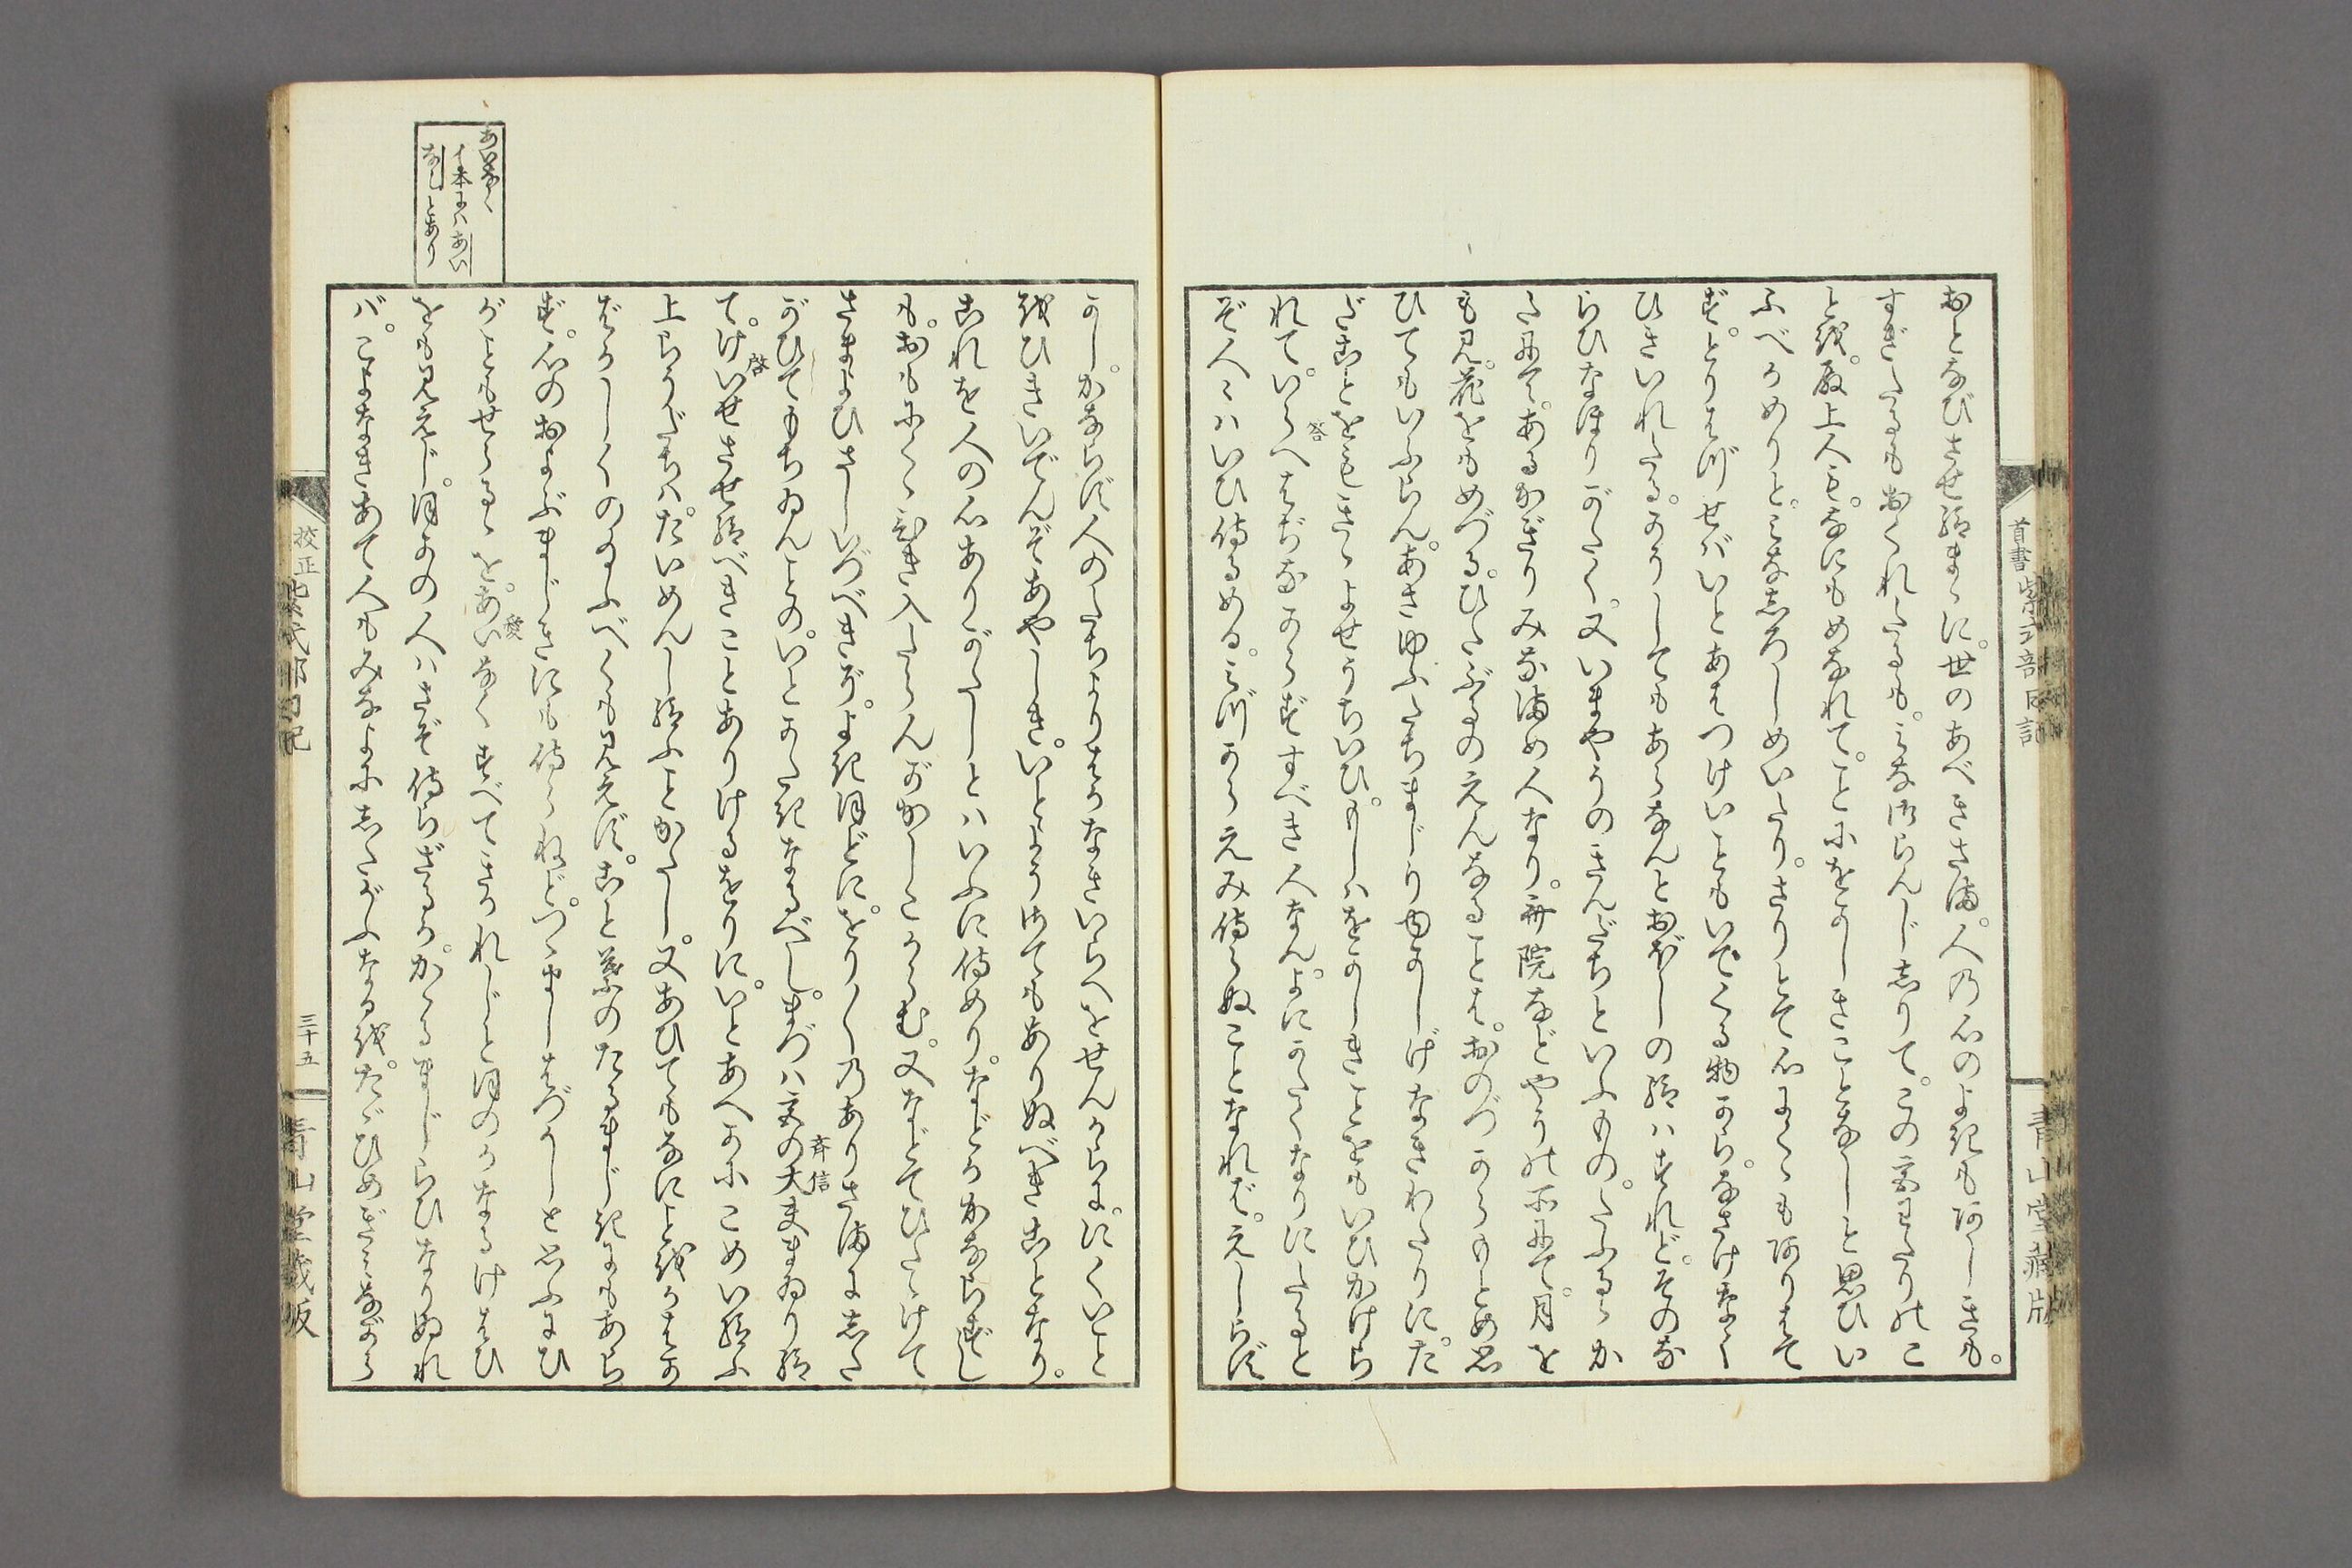 首書
紫式部日記
青山堂藏版
おとなびさせ給まゝに。世のあべきさま。人の心のよきもあしきも。
すぎたるもおくれたるも。みな御らんじしりて。この宮わたりのこ
とを。殿上人も。なにもめなれて。ことにをかしきことなしと思ひい
ふべかめりと。みなしろしめいたり。さりとて心にくゝもありはて
ず。とりはづせばいとあはつけいこともいでくる物から。なさけなく
ひきいれたる。かうしてもあらなんとおぼしの給はすれど。そのな
らひなほりがたく。又いまやうのきんだちといふもの。たふるゝか
たにて。あるかぎりみなまめ人なり。斎院などやうの所にて。月を
も見。花をもめづる。ひたぶるのえんなることは。おのづからもとめ思
ひてもいふらん。あさゆふたちまじりゆかしげなきわたりに。た
だごとをもきゝよせうちいひ。もしはをかしきことをもいひかけら
れて。いらへはぢなからずすべき人なん。よにかたくなりにたると
答
ぞ人々はいひ侍るめる。みづからえみ侍らぬことなれば。えしらず
かし。かならず人のたちよりはかなきいらへをせんからに。にくいこと
をひきいでんぞあやしき。いとようさてもありぬべきことなり。
これを人の心ありがたしとはいふに侍めり。などかかならずし
も。おもにくゝひき入たらんがかしこからむ。又などてひたゝけて
さまよひさしいづべきぞ。よきほどに。をり〳〵のありさまにした
がひてもちゐんことの。いとかたきなるべし。まづは宮の大夫まゐり給
斉信
て。けいせさせ給べきことありけるをりに。いとあへかにこめい給ふ
啓
上らうだちは。たいめんし給ふことかたし。又あひてもなにことをかはか
ばかしくのたまふべくも見えず。こと葉のたるまじきにもあら
ず。心のおよぶまじきにも侍らねど。つゝましはづかしと思ふにひ
がこともせらるゝを。あいなくすべてきかれじとほのかなるけはひ
愛
をも見えじ。ほかの人はさぞ侍らざなるか。かゝるまじらひなりぬれ
ば。こよなきあて人もみなよにしたがふなるを。たゞひめぎみながら
あいなく
イ本にはあい
なしとあり
校正
紫式部日記
三十五
青山堂藏版